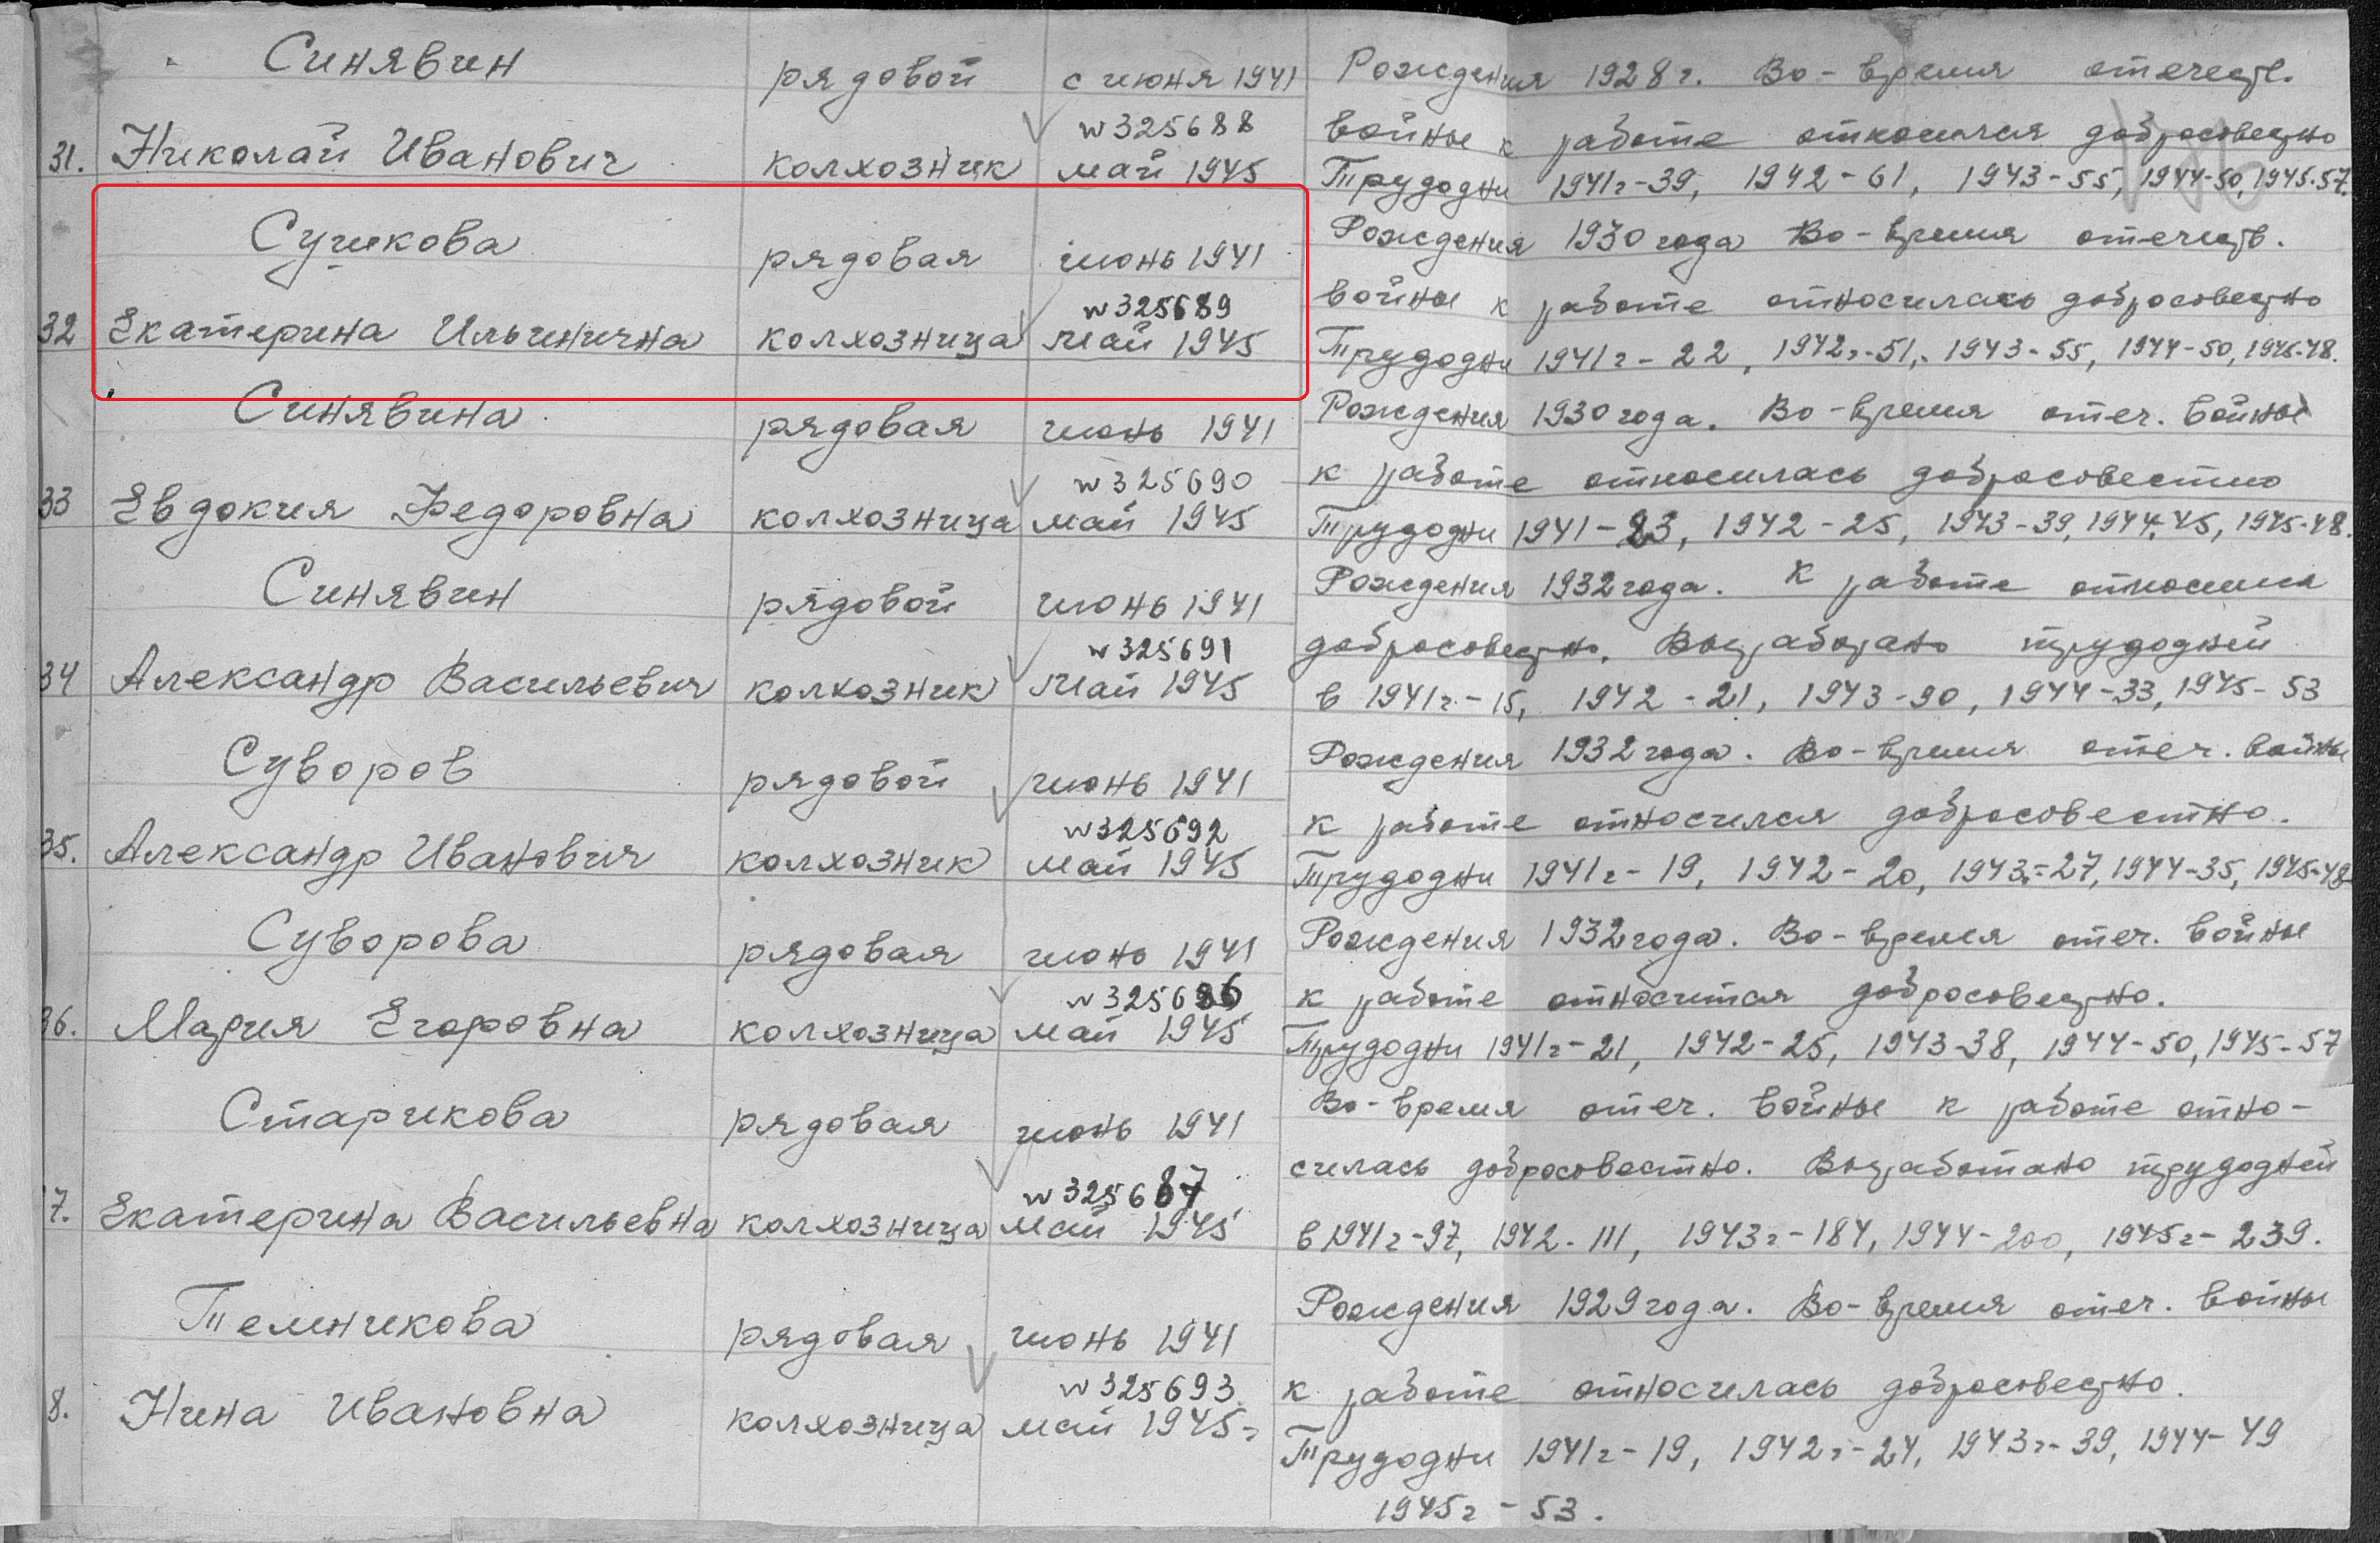 Синявин рядовой с июня 1941 Рождения 1928 г. Во-время отечеств.
w 325688 войны к работе относился добросовестно
31. Николай Иванович колхозник май 1945 Трудодни 1941г-39, 1942-61, 1943-55, 1944-50, 1945-57.
Сушкова рядовая июнь 1941 Рождения 1930 года Во-время отечеств.
w 325689 войны к работе относилась добросовестно
32 Екатерина Ильинична колхозница май 1945 Трудодни 1941г-22, 1942г-51, 1943-55, 1944-50, 1945-48.
Синявина рядовая июнь 1941 Рождения 1930 года. Во-время отеч. войны
w 325690 к работе относилась добросовестно
33 Евдокия Федоровна колхозница май 1945 Трудодни 1941-23, 1942-25, 1943-39, 1944-45, 1945-48.
Синявин рядовой июнь 1941 Рождения 1932 года. К работе относился
w 325691 добросовестно. Выработано трудодней
34 Александр Васильевич колхозник май 1945 в 1941г-15, 1942-21, 1943-90, 1944-33, 1945-53
Суворов рядовой июнь 1941 Рождения 1932 года. Во-время отеч. войны
w 325692 к работе относился добросовестно.
35. Александр Иванович колхозник май 1945 Трудодни 1941г-19, 1942-20, 1943-27, 1944-35, 1945-48
Суворова рядовая июнь 1941 Рождения 1932 года. Во-время отеч. войны
w 325686 к работе относится добросовестно.
36. Мария Егоровна колхозница май 1945 Трудодни 1941г-21, 1942-25, 1943-38, 1944-50, 1945-57
Старикова рядовая июнь 1941 Во-время отеч. войны к работе отно-
w 325687 силась добросовестно. Выработано трудодней
7. Екатерина Васильевна колхозница май 1945 в 1941г-97, 1942-111, 1943г-184, 1944-200, 1945г-239.
Темникова рядовая июнь 1941 Рождения 1929 года. Во-время отеч. войны
w 325693 к работе относилась добросовестно.
8. Нина Ивановна колхозница май 1945г Трудодни 1941г-19, 1942г-24, 1943г-39, 1944-49
1945г-53.